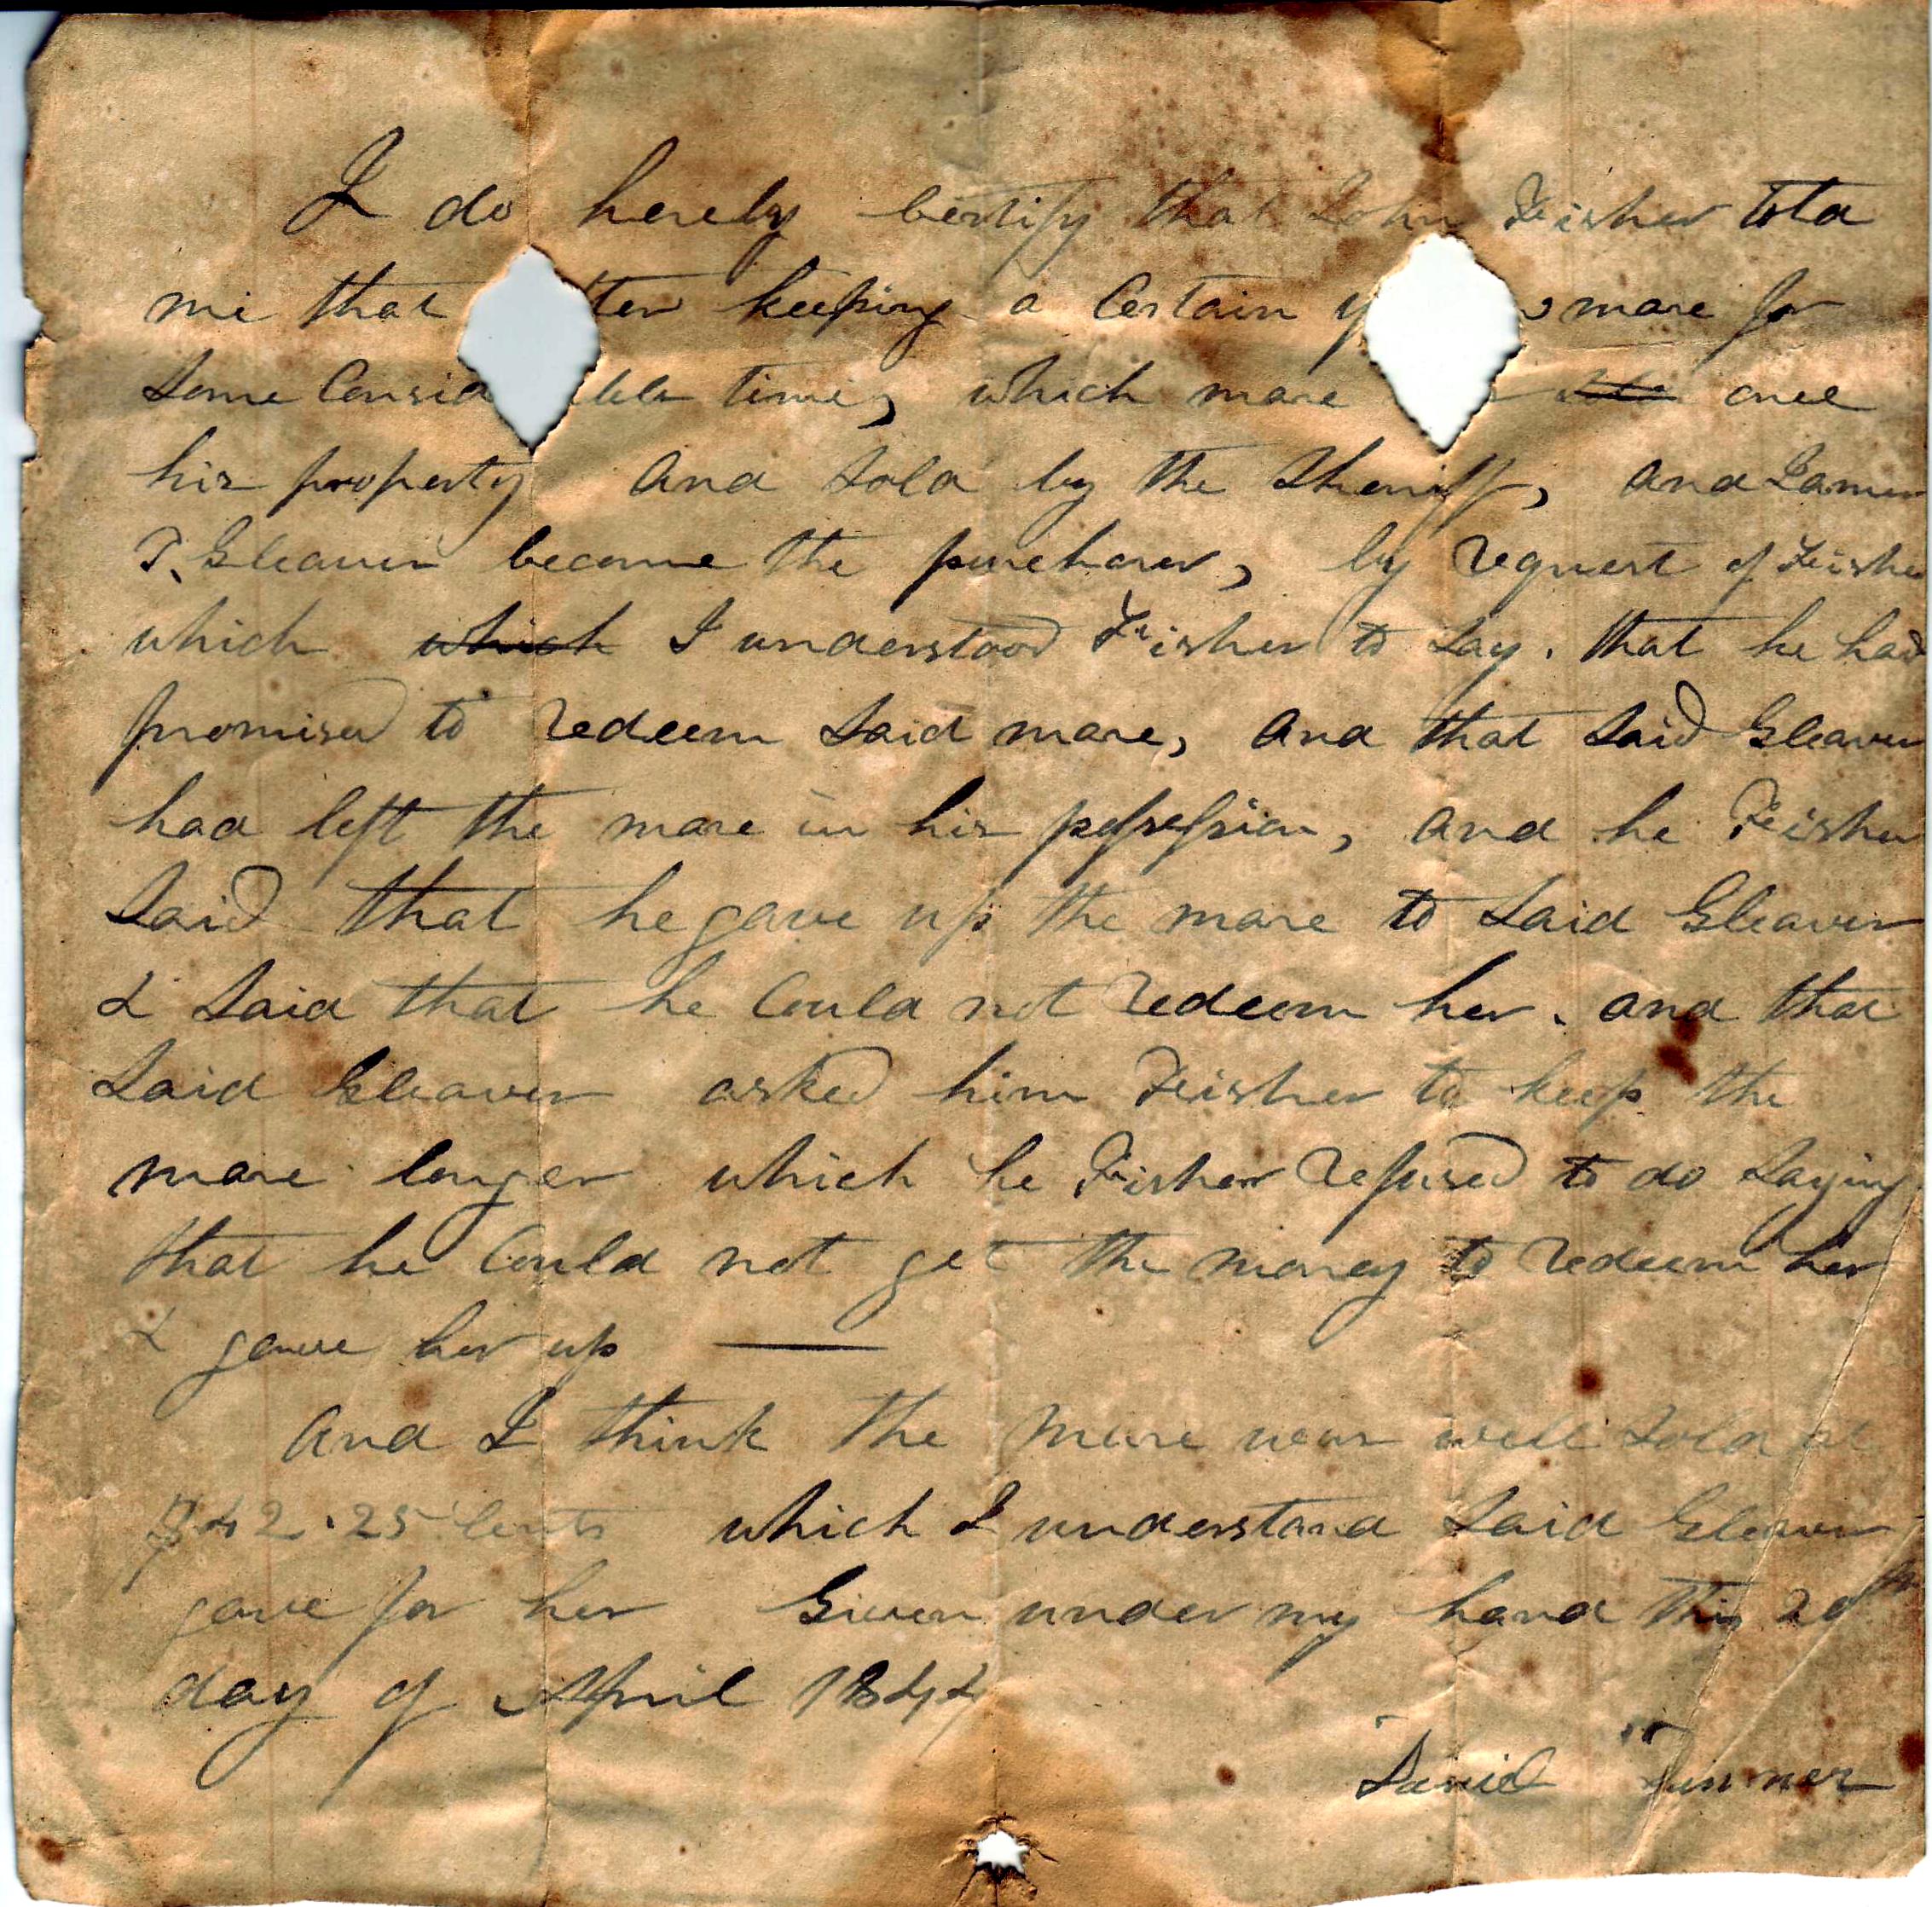 I do hereby certify that John Feisher told
me that ter keeping a Certain y mare for
Some Consid able time, which mare once
his property and Sold by the Sheriff, and James
T. Gleaven became the purchaser, by request of Feisher
which which I understood Feisher to Say. that he had
promised to redeem Said mare, and that Said Gleaven
had left the mare in his possession, and he Feisher
Said that he gave up the mare to Said Gleaven
& Said that he Could not redeem her. and that
Said Gleaven asked him Feisher to keep the
mare longer which he Feisher refused to do Saying
that he Could not get the money to redeem her
& gave her up
and I think the mare was well Sold at
$42.25 Cents which I understand Said Gleaven
gave for her Given under my hand this 20th
day of April 1844
David